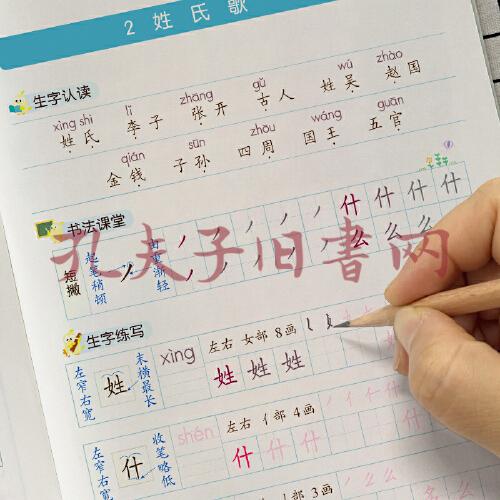 2 姓氏歌
生字认读
xìng shì lǐ zhāng gǔ wú zhào
姓氏 李子 张开 古人 姓吴 赵国
qián sūn zhōu wáng guān
金钱 子孙 四周 国王 五官
书法课堂
短撇
起笔稍顿
由重渐轻
什 什 什 什
么 么 么 么
孔夫子旧书网
生字练写
左窄右宽
姓
末横最长
xìng
左右 女部 8画
姓 姓 姓
左窄右宽
什
收笔略低
shén
左右 亻部 4画
什 什 什
3画